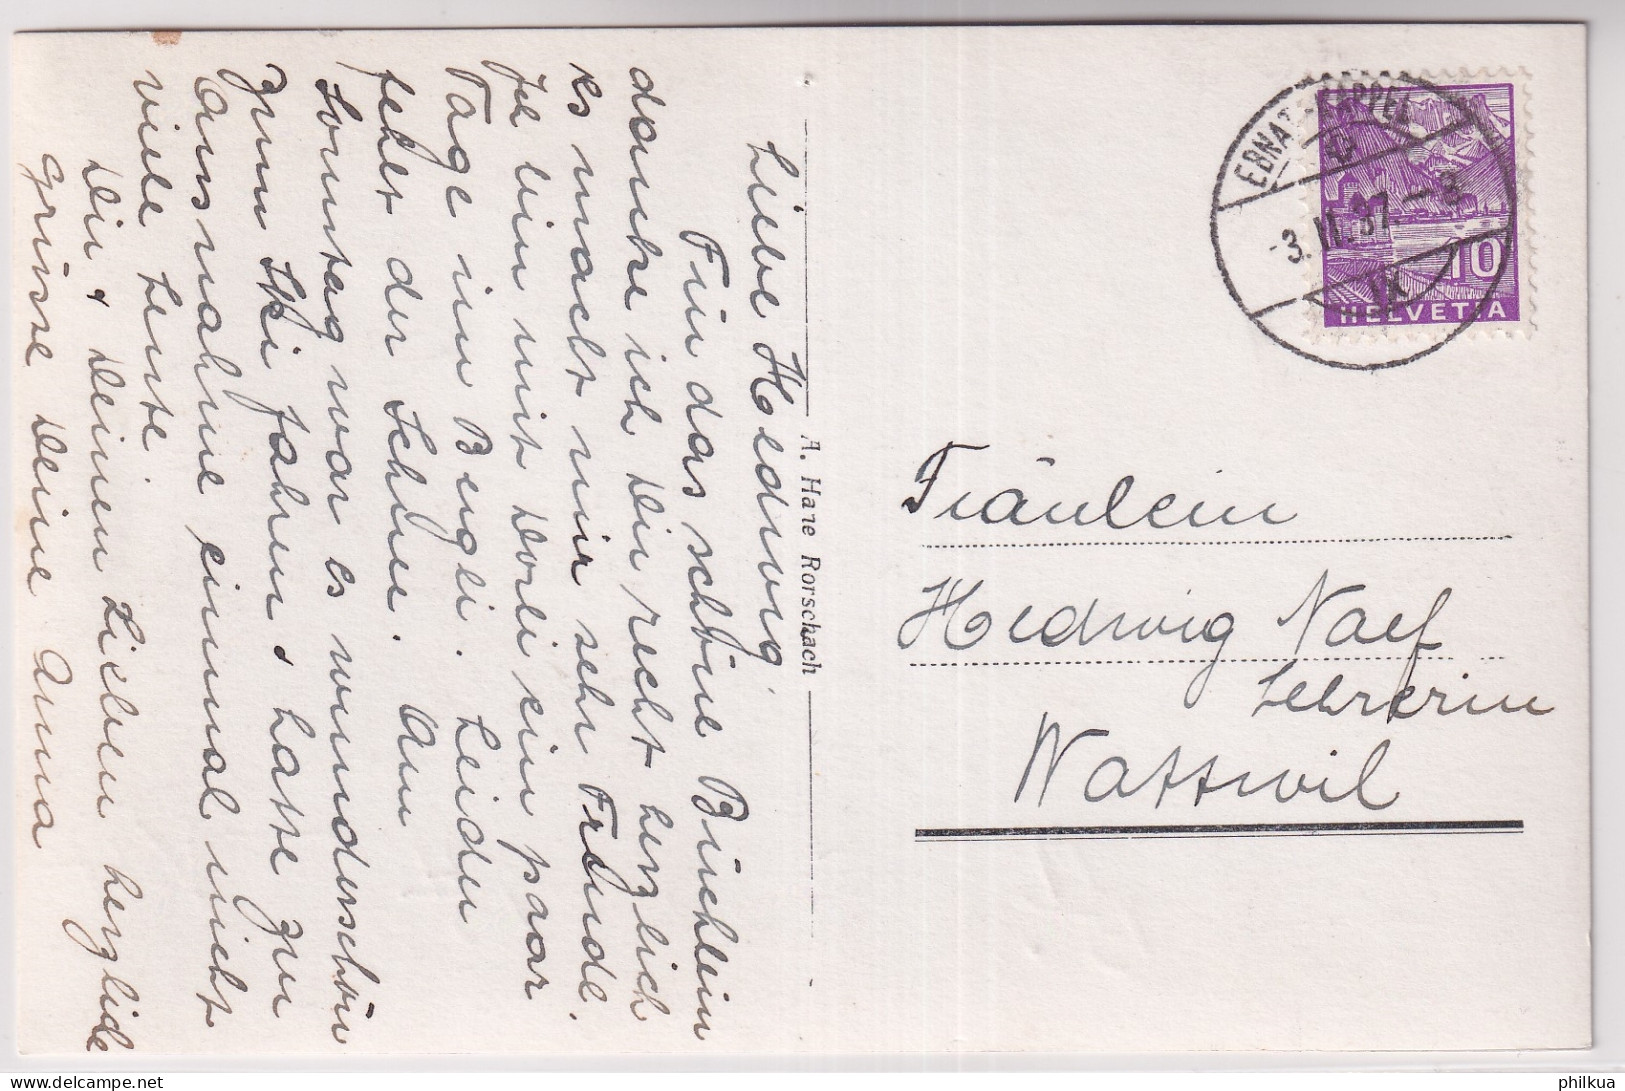 Liebe Hedwig!
Für das schöne Büchlein
danke ich Dir recht herzlich
es macht mir sehr Freude.
Ich bin mit Dorli ein paar
Tage im Bergli. Leider
fehlt der Schnee. Am
Sonntag war es wunderschön
zum Ski fahren & hatte zur
Ausnahme einmal nicht
viele Leute.
Dir & Deinen Lieben herzliche
Grüsse Deine Anna
A. Hane Rorschach
EBNAT-KAPPEL
-3.II.37-8
10
HELVETIA
Fräulein
Hedwig Naef
Lehrerin
Wattwil
philkua.com